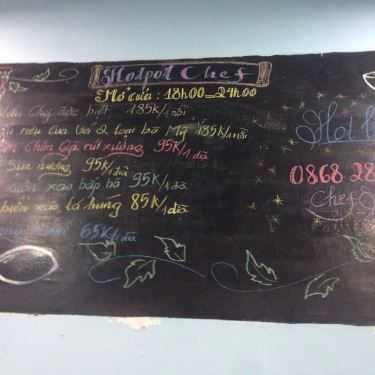 Hotpot Chef
Mở cửa: 18h00 - 24h00
Chef đặc biệt 185K/1 nồi
riêu cua bò 2 loại bò Mỹ 185K/1 nồi
chân Gà rút xương 95K/1 đĩa
Sụn nướng 95K/1 đĩa
xào bắp bò 95K/1 đĩa
xào lá hung 85K/1 đĩa
65K/1 đĩa
Hotl
0868 28
Chef